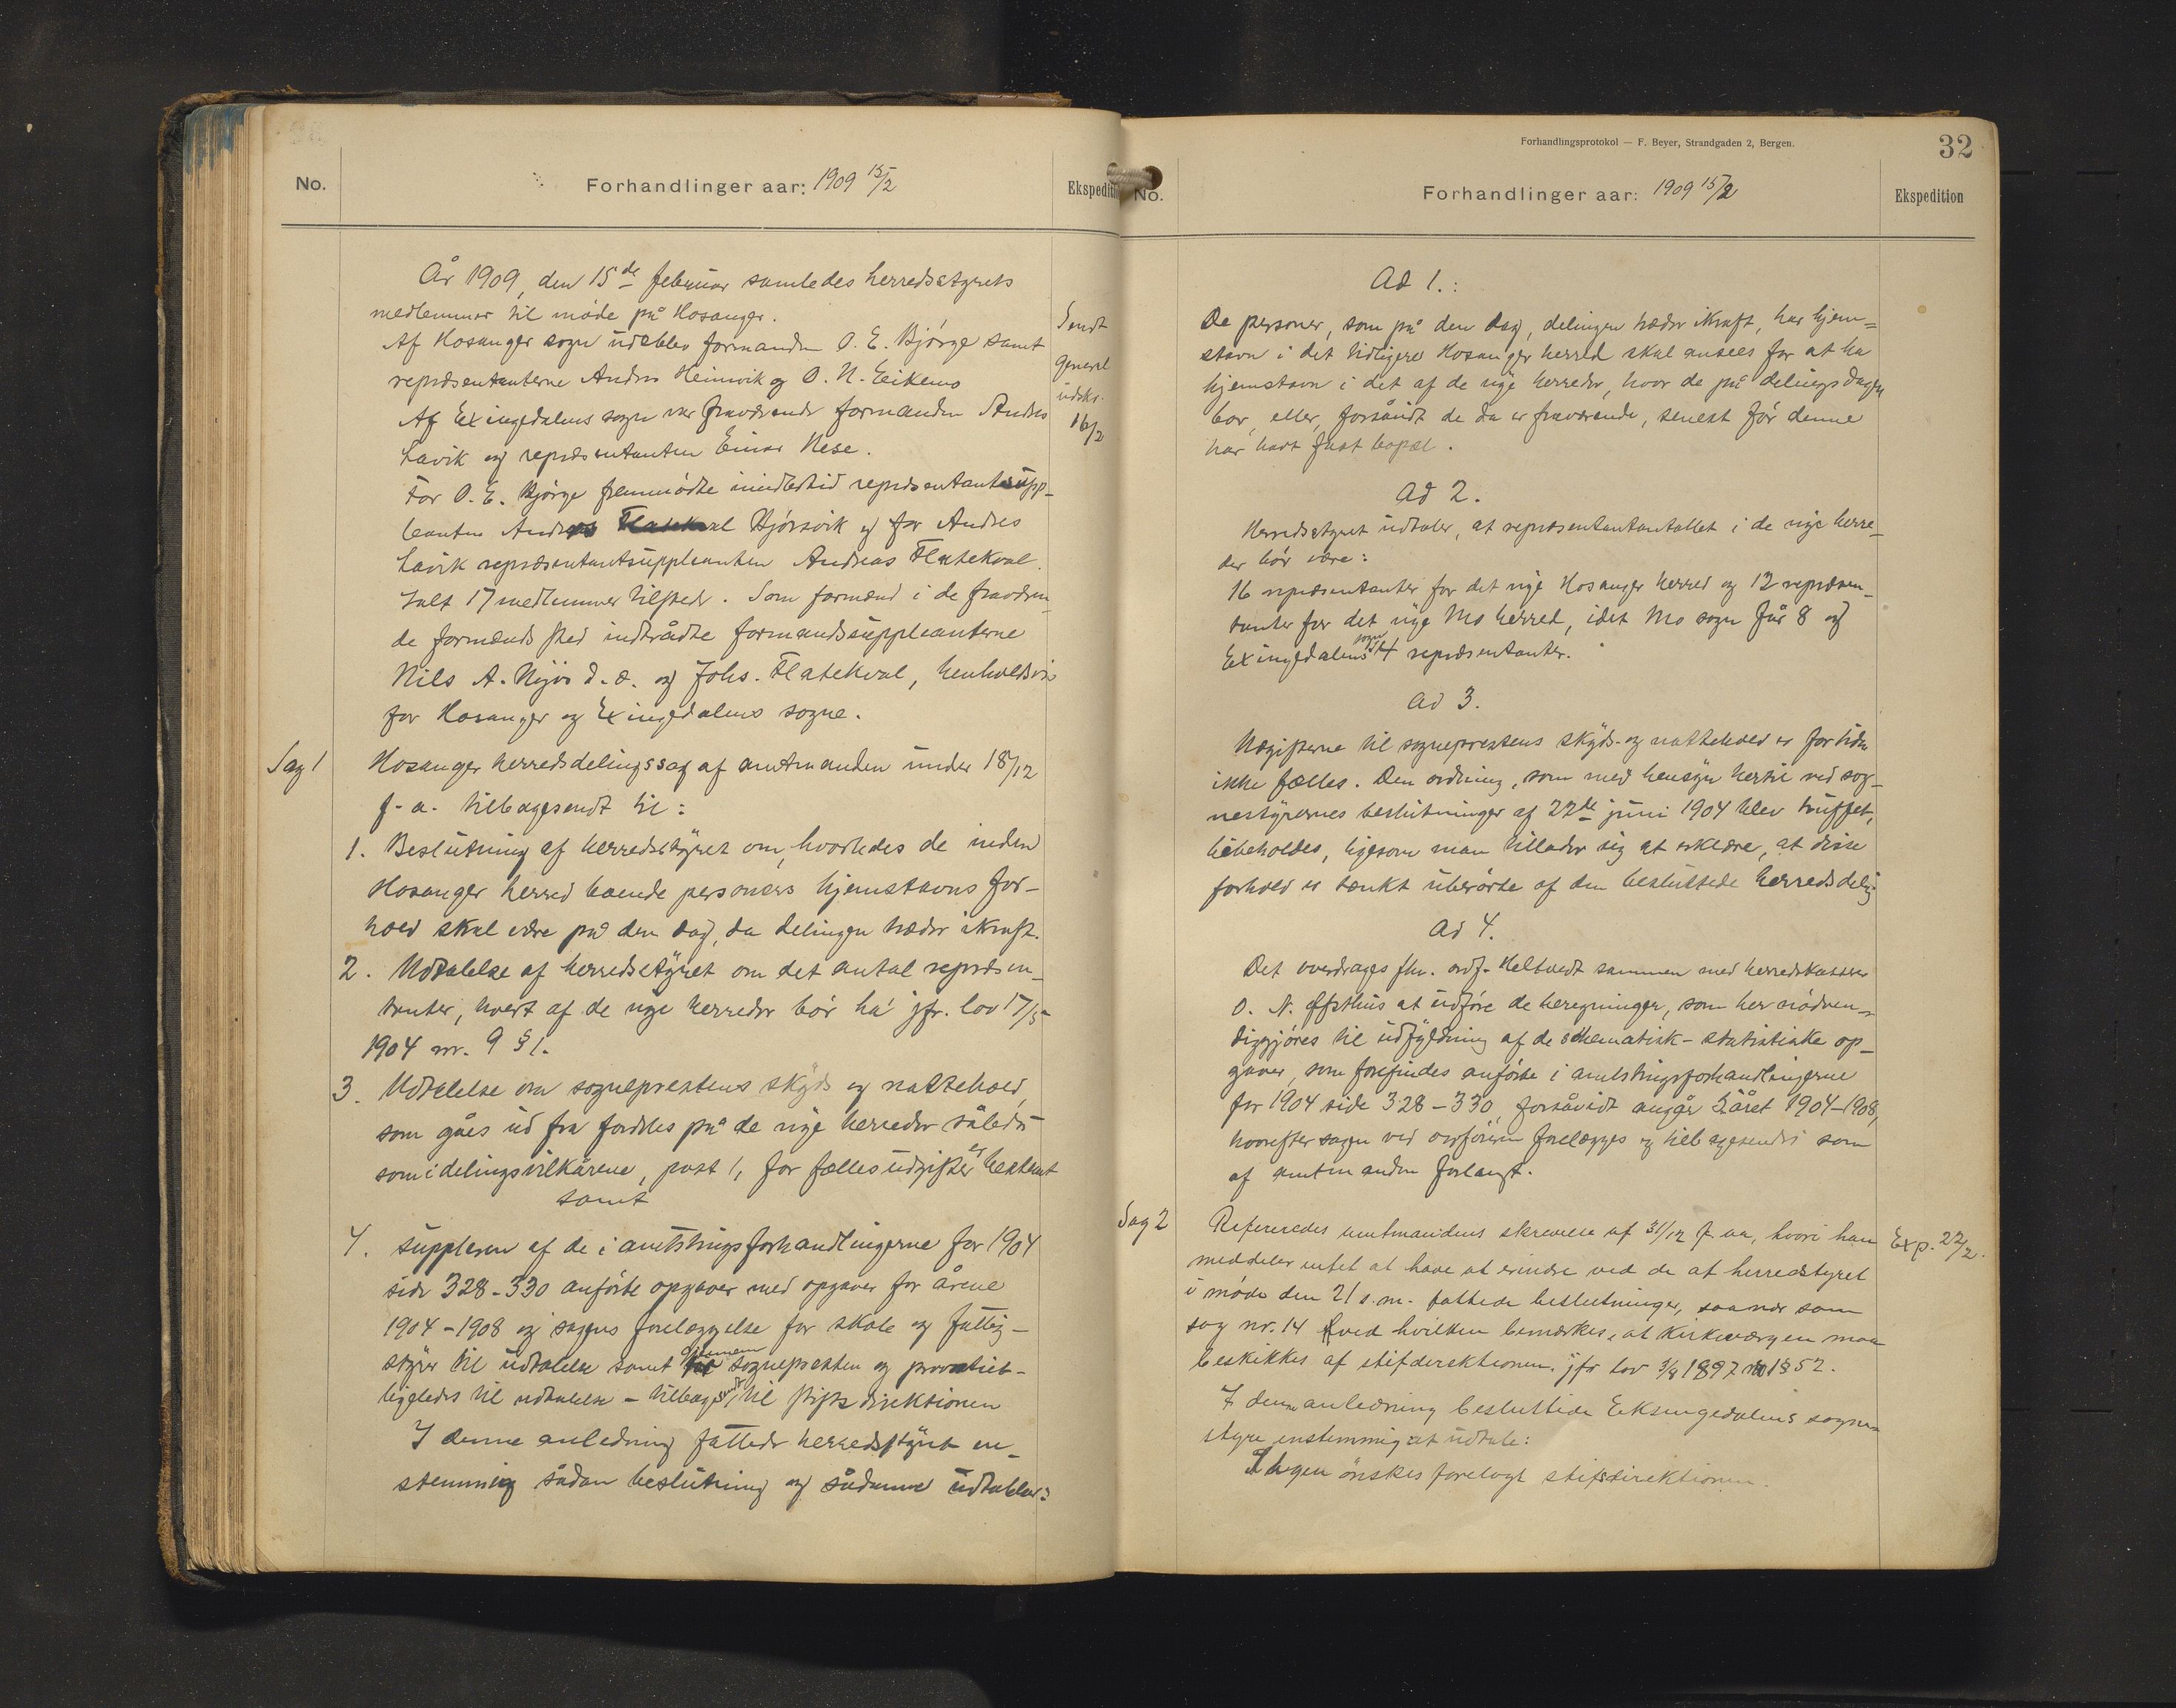 No.
Forhandlinger aar: 1909 15/2
Ekspediti
År 1909, den 15de februar samledes herredsstyrets
medlemmer til møde på Hosanger.
Af Hosanger sogn udeblev formanden O. E. Bjørge samt
repræsentanterne Andres Heimvik og O. N. Eikemo
Af Exingedalens sogn var fraværende formanden Andres
Lavik og repræsentanten Einar Nese.
For O. E. Bjørge fremmødte imidlertid repræsentantsupp-
leanten Andreas Hjørsvik og for Andres
Lavik repræsentantsuppleanten Andreas Flatekval.
Ialt 17 medlemmer tilstede. Som formænd i de fraværen-
de formænds sted indtrådte formandssuppleanterne
Nils A. Mjøs d. æ. og Johs. Flatekval, henholdsvis
for Hosanger og Exingedalens sogne.
Sendt
general
udskr.
16/2
Sag 1
Hosanger herredsdelingssag af amtmanden under 18/12
f. a. tilbagesendt til:
1. Beslutning af herredsstyret om, hvorledes de inden
Hosanger herred boende personers hjemstavns for-
hold skal være på den dag, da delingen træder ikraft.
2. Udtalelse af herredsstyret om det antal repræsen-
tanter, hvert af de nye herreder bør ha jfr. lov 17/5
1904 nr. 9 § 1.
3. Udtalelse om sogneprestens skyds og nattehold,
som gåes ud fra fordeles på de nye herreder således
som i delingsvilkårene, post 1, for fællesudgifter er bestemt
samt
4. supplering af de i amtstingsforhandlingerne for 1904
side 328-330 anførte opgaver med opgaver for årene
1904-1908 og sagens forelæggelse for skole og fattig-
styret til udtalelse samt gjennem sognepresten og provstiet-
ligeledes til udtalelse - tilbagesendt til stiftsdirektionen
I denne anledning fattede herredsstyret en-
stemmig sådan beslutning og sådanne udtalelser:
Forhandlingsprotokol — F. Beyer, Strandgaden 2, Bergen.
32
No.
Forhandlinger aar: 1909 15/2
Ekspedition
Ad 1.:
De personer, som på den dag, delingen træder ikraft, har hjem=
stavn i det tidligere Hosanger herred skal ansees for at ha
hjemstavn i det af de nye herreder, hvor de på delingsdagen
bor, eller, forsåvidt de da er fraværende, senest før denne
har havt fast bopæl.
Ad 2.
Herredsstyret udtaler, at repræsentantantallet i de nye herre-
der bør være:
16 repræsentanter for det nye Hosanger herred og 12 repræsen-
tanter for det nye Mo herred, idet Mo sogn får 8 og
Exingedalens sogn 4 repræsentanter.
Ad 3.
Udgifterne til sogneprestens skyds- og nattehold er for tiden
ikke fælles. Den ordning, som med hensyn hertil ved sog-
nestyrernes beslutninger af 22de juni 1904 blev truffet,
bibeholdes, ligesom man tillader sig at erklære, at disse
forhold er tænkt uberørte af den besluttede herredsdeling
Ad 4.
Det overdrages fhv. ordf. Heltvedt sammen med herredskasserer
O. N. Ofsthus at udføre de beregninger, som her nødven-
diggjøres til udfyldning af de schematisk-statistiske op-
gaver, som forefindes anførte i amtstingsforhandlingerne
for 1904 side 328-330, forsåvidt angår 5året 1904-1908,
hvorefter sagen ved ordføreren forelægges og tilbagesendes som
af amtmanden forlangt.
Sag 2
Refereredes amtmandens skrivelse af 31/12 f. aa, hvori han
meddeler intet at have at erindre ved de af herredsstyret
i møde den 21 s. m. fattede beslutninger, saanær som
sag nr. 14 ved hvilken bemærkes, at kirkeværgen maa
beskikkes af stiftsdirektionen. jfr lov 3/8 1897 no 1 § 52.
I denne anledning besluttede Eksingedalens sogne-
styre enstemmig at udtale:
Sagen ønskes forelagt stiftsdirektionen.
Exp. 22/2.